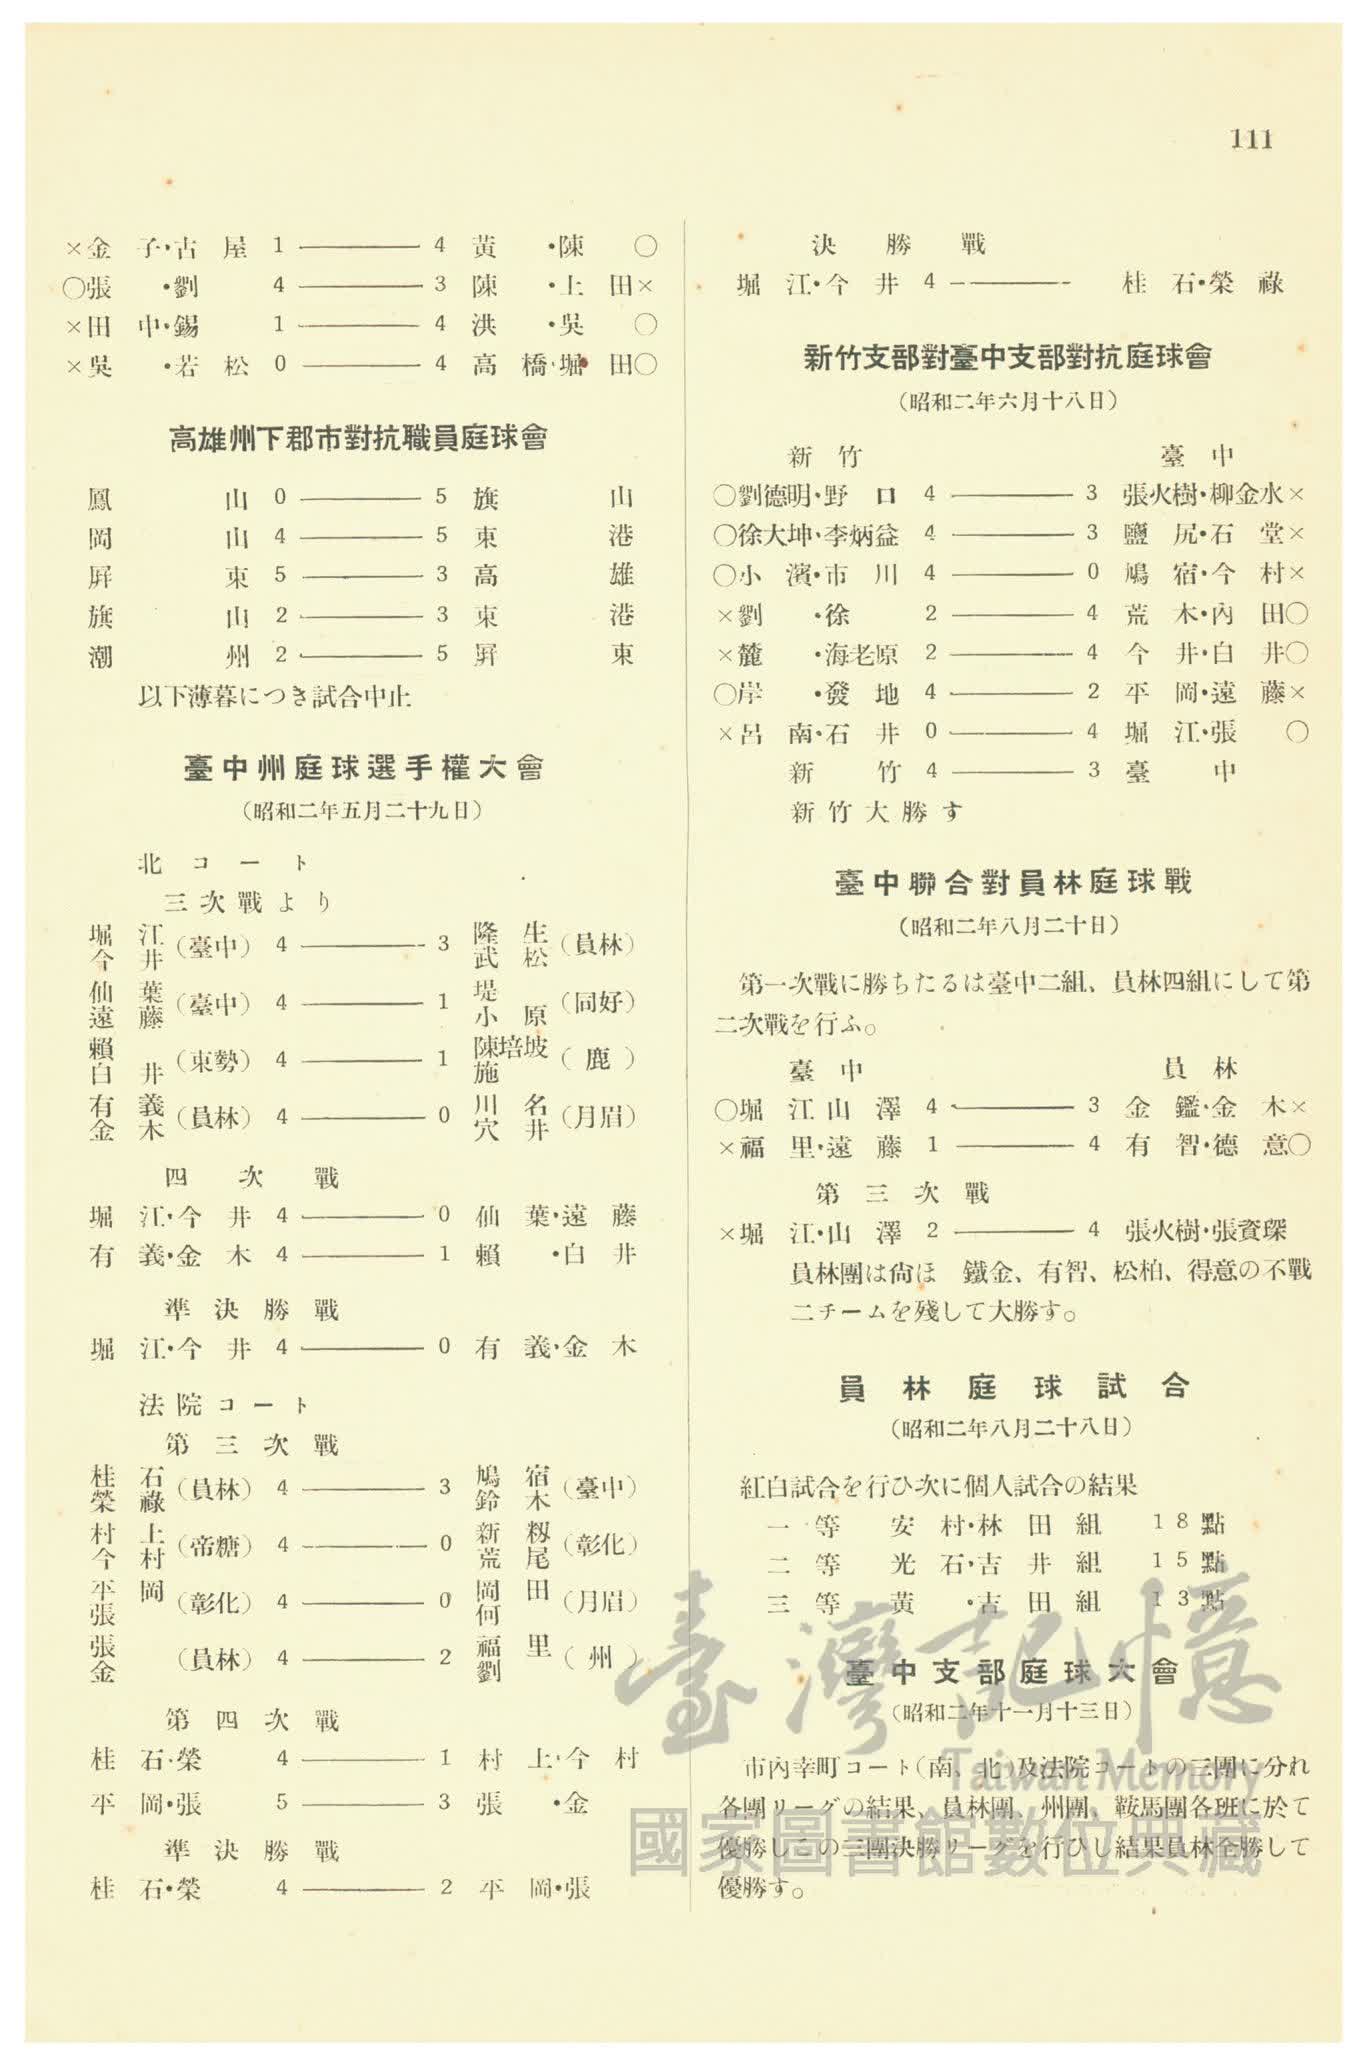 111
×金子・古屋 1 ―― 4 黃・陳○
○張・劉 4 ―― 3 陳・上田×
×田中・錫 1 ―― 4 洪・吳○
×吳・若松 0 ―― 4 高橋・堀田○
高雄州下郡市對抗職員庭球會
鳳山 0 ―― 5 旗山
岡山 4 ―― 5 東港
屛東 5 ―― 3 高雄
旗山 2 ―― 3 東港
潮州 2 ―― 5 屛東
以下薄暮につき試合中止
臺中州庭球選手權大會
(昭和二年五月二十九日)
北コート
三次戰より
堀江 今井 (臺中) 4 ―― 3 隆生 武松 (員林)
仙葉 遠藤 (臺中) 4 ―― 1 堤 小原 (同好)
賴 白井 (東勢) 4 ―― 1 陳培坡 施 (鹿)
有義 金木 (員林) 4 ―― 0 川名 穴井 (月眉)
四次戰
堀江・今井 4 ―― 0 仙葉・遠藤
有義・金木 4 ―― 1 賴・白井
準決勝戰
堀江・今井 4 ―― 0 有義・金木
法院コート
第三次戰
桂石 榮祿 (員林) 4 ―― 3 鳩宿 鈴木 (臺中)
村上 今村 (帝糖) 4 ―― 0 新籾 荒尾 (彰化)
平岡 張 (彰化) 4 ―― 0 岡田 何 (月眉)
張 金 (員林) 4 ―― 2 福里 劉 (州)
第四次戰
桂石・榮 4 ―― 1 村上・今村
平岡・張 5 ―― 3 張・金
準決勝戰
桂石・榮 4 ―― 2 平岡・張
決勝戰
堀江・今井 4 ―― 桂石・榮祿
新竹支部對臺中支部對抗庭球會
(昭和二年六月十八日)
新竹 臺中
○劉德明・野口 4 ―― 3 張火樹・柳金水×
○徐大坤・李炳益 4 ―― 3 鹽尻・石堂×
○小濱・市川 4 ―― 0 鳩宿・今村×
×劉・徐 2 ―― 4 荒木・內田○
×麓・海老原 2 ―― 4 今井・白井○
○岸・發地 4 ―― 2 平岡・遠藤×
×呂南・石井 0 ―― 4 堀江・張○
新竹 4 ―― 3 臺中
新竹大勝す
臺中聯合對員林庭球戰
(昭和二年八月二十日)
第一次戰に勝ちたるは臺中二組、員林四組にして第
二次戰を行ふ。
臺中 員林
○堀江山澤 4 ―― 3 金鑑・金木×
×福里・遠藤 1 ―― 4 有智・德意○
第三次戰
×堀江・山澤 2 ―― 4 張火樹・張資琛
員林團は尙ほ 鐵金、有智、松柏、得意の不戰
二チームを殘して大勝す。
員林庭球試合
(昭和二年八月二十八日)
紅白試合を行ひ次に個人試合の結果
一等 安村・林田組 18點
二等 光石・吉井組 15點
三等 黃・古田組 13點
臺中支部庭球大會
(昭和二年十一月十三日)
市內幸町コート(南、北)及法院コートの三團に分れ
各團リーグの結果、員林團、州團、鞍馬團各班に於て
優勝しこの三團決勝リーグを行ひし結果員林全勝して
優勝す。
臺灣記憶
Taiwan Memory
國家圖書館數位典藏